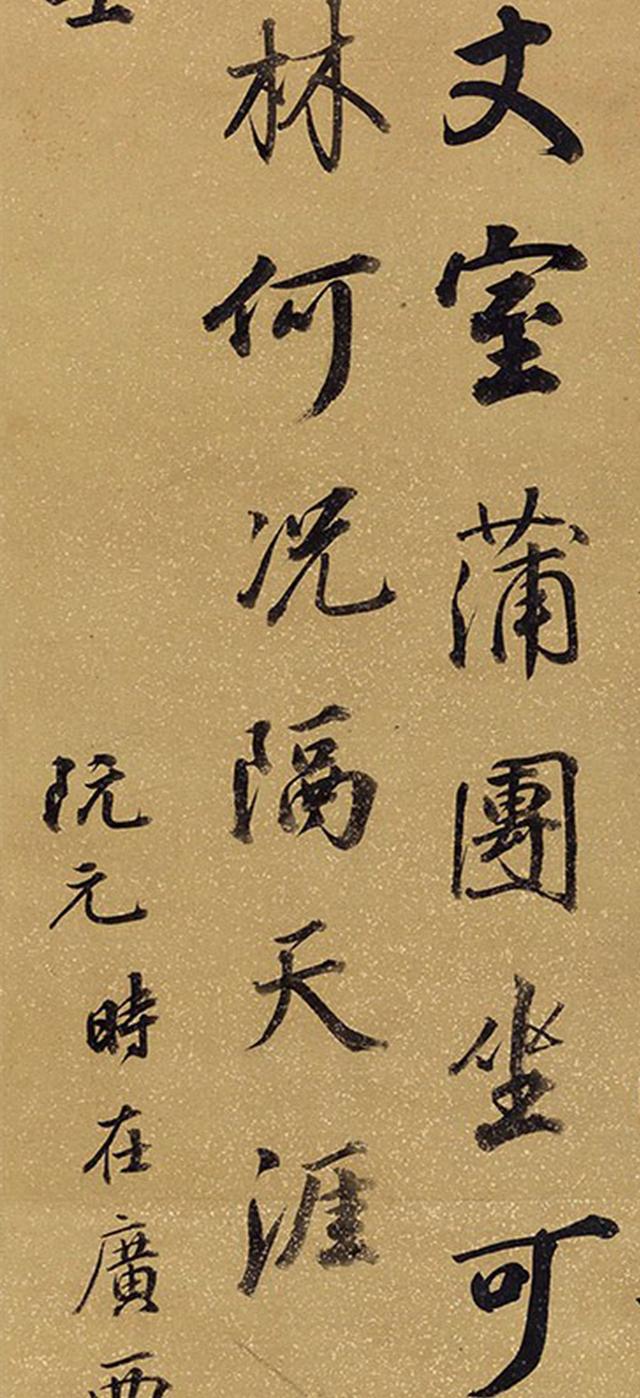 丈室蒲團坐可
林何况隔天涯
阮元時在廣西